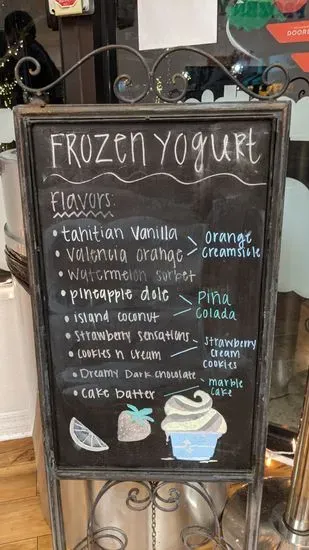 FROZEN YOGURT
Flavors:
• tahitian vanilla
• valencia orange
Orange
Creamsicle
• watermelon sorbet
• pineapple dole
• island coconut
Piña
Colada
• strawberry sensations
• cookies n cream
strawberry
cream
cookies
• Dreamy Dark chocolate
• cake batter
marble
cake